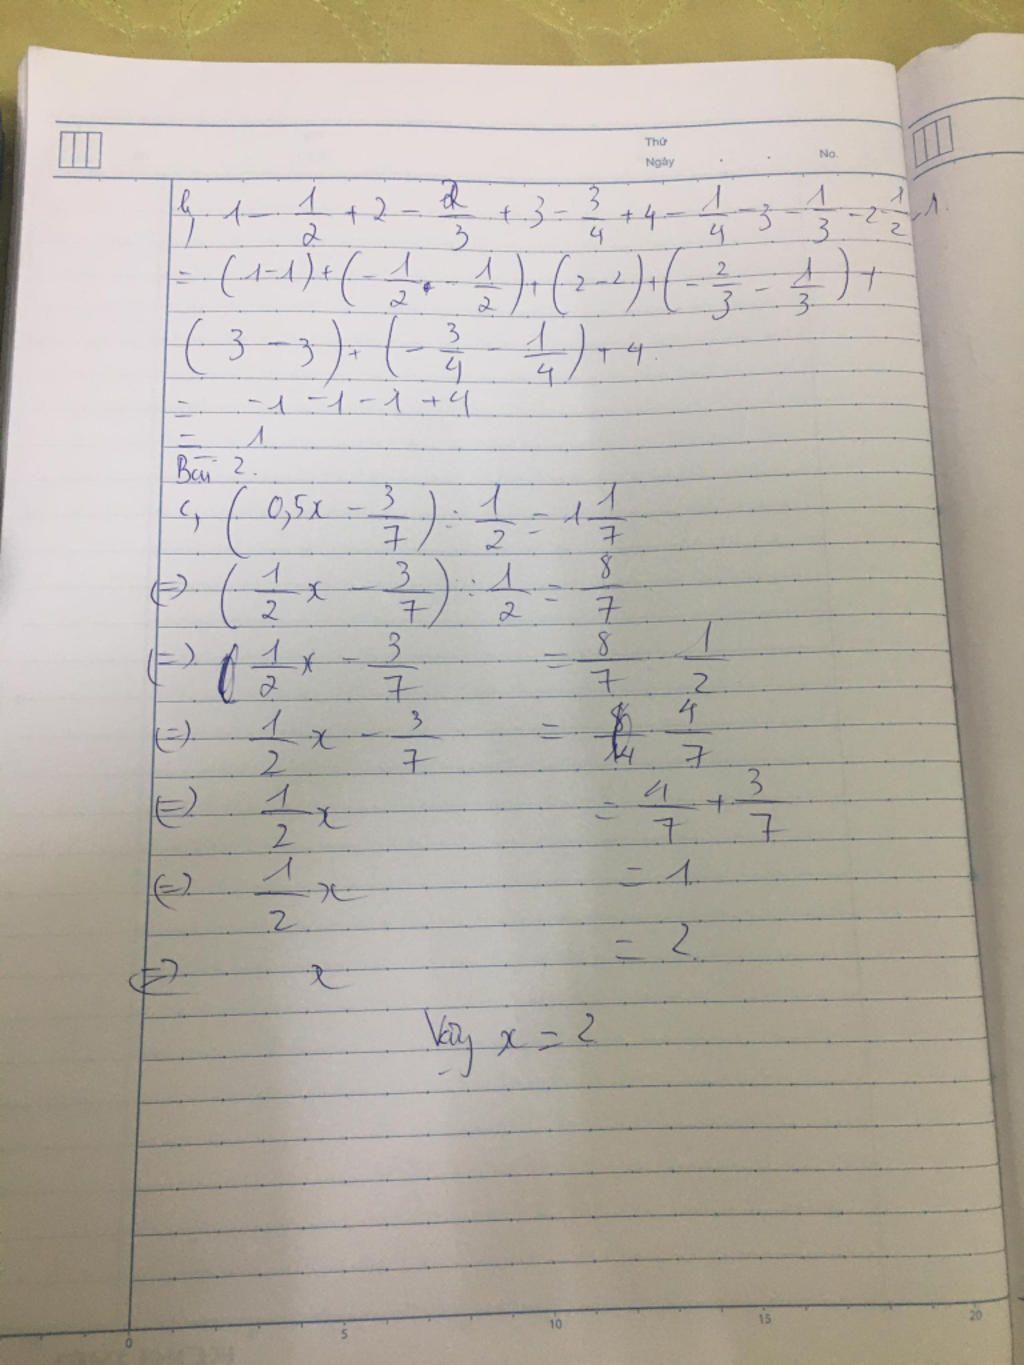 Thứ
Ngày . . No.
b, 1 - 1/2 + 2 - 2/3 + 3 - 3/4 + 4 - 1/4 - 3 - 1/3 - 2 - 1/2 - 1.
= (1-1) + (- 1/2 - 1/2) + (2-2) + (- 2/3 - 1/3) +
(3 - 3) + (- 3/4 - 1/4) + 4.
= -1 -1 -1 +4
= 1
Bài 2.
c, (0,5x - 3/7) : 1/2 = 1 1/7
(=) (1/2 x - 3/7) : 1/2 = 8/7
(=) 1/2 x - 3/7 = 8/7 . 1/2
(=) 1/2 x - 3/7 = 4/7
(=) 1/2 x = 4/7 + 3/7
(=) 1/2 x = 1
(=) x = 2
Vậy x = 2
0 5 10 15 20